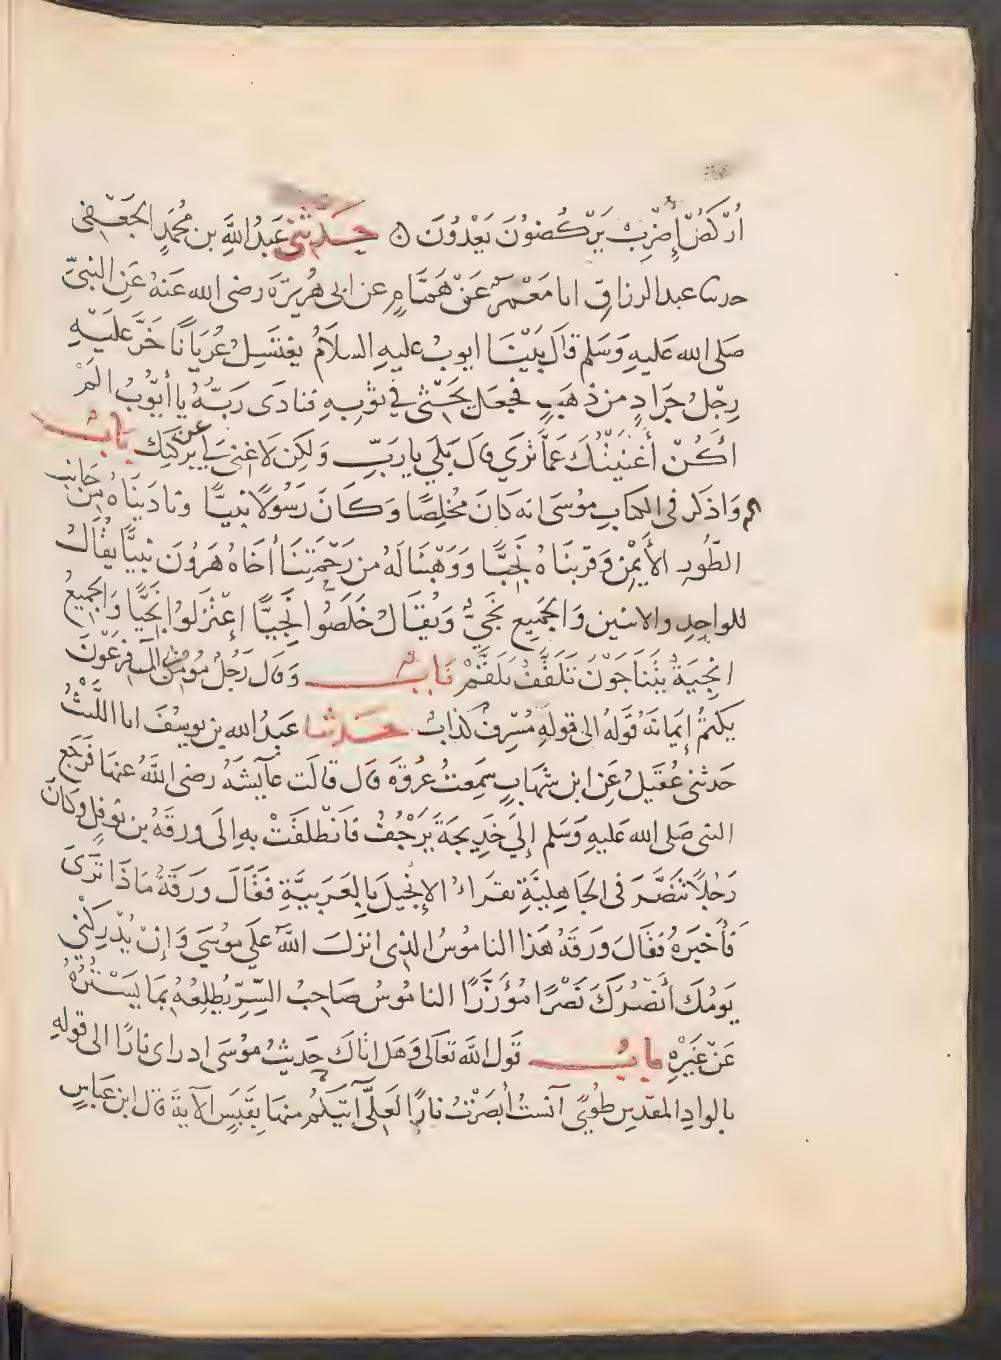 أُرْكُضْ إِضْرِبْ يَرْكُضُونَ يَعْدُونَ ۞ حَدَّثَنِي عَبْدُ اللَّهِ بن مُحَمَّدٍ الجُعْفِي
حدثنا عبد الرزاقِ انا مَعْمَرٌ عَنْ هَمَّامٍ عن ابي هُرَيْرَةَ رضى الله عَنْهُ عَنِ النبيِّ
صَلى الله عَليهِ وَسَلم قالَ بَيْنَا ايوبُ عليهِ السلامُ يغتَسِلُ عُرْيَانًا خَرَّ عَلَيْهِ
رِجْلُ جَرَادٍ من ذَهَبٍ فجعَل يَحْثِي في ثوْبِهِ فنادَى رَبُّهُ يا أيُّوبُ الَمْ
اَكُنْ أَغْنَيْتُكَ عَمَّا تَرَي قال بَلَي يا رَبِّ وَلكِن لَا غِنى لِي عن بركتِك بَابُ
واذكر في الكتابِ مُوسَى انه كَانَ مُخلِصًا وَكَانَ رَسُولًا نَبِيًّا ونادَيْنَاهُ مِنْ جَانِبِ
الطُّورِ الأَيْمَنِ وَقَرَّبنَاهُ نَجِيًّا وَوَهَبْنَا لَهُ من رَحْمَتِنَا أخَاهُ هَرُونَ نبِيًّا يُقَالُ
للواحِدِ والاثنين وَالجَمِيع نَجِيٌّ وَيُقَالُ خَلَصُوا نَجِيًّا اِعْتَزَلُوا نَجِيًّا وَالجمِيعُ
انْجِيَةٌ يَتَنَاجَوْنَ تَلَقَّفُ تَلَقَّمُ بَابُ وَقال رَجُلٌ مُومِنٌ من آلِ فِرعَوْنَ
يكتمُ إيمَانَهُ قَولُه الى قولهِ مُسْرِفٌ كذابٌ حَدَّثنا عَبدُ الله بن يوسُفَ انا اللَّيْثُ
حَدثنى عُقَيلٌ عَنِ ابن شهَابٍ سَمِعتُ عُرْوَةَ قال قالَت عَايشَةُ رضى اللَّهُ عنهَا فَرجَع
النبى صَلى الله عَليهِ وَسَلم إلَي خَدِيجَةَ يَرْجُفُ فَانْطَلَقَتْ بهِ إلَى وَرقَةَ بن نوْفلٍ وَكَانَ
رَجُلًا تَنَصَّرَ في الجَاهِليَّةِ يقرَاُ الإنجيل بِالعَرَبِيَّةِ فَقَالَ وَرَقَةُ مَاذَا تَرَى
فَأخبَرَهُ فَقالَ وَرقَةُ هَذا الناموُسُ الذى انزلَ اللَّهُ علَي مُوسَي وَإنْ يُدْرِكْنِي
يَومُكَ أَنْصُرْكَ نَصْرًا مُؤَزَّرًا الناموُسُ صَاحِبُ السِّرِّ يُطْلِعُهُ بِمَا يَسْتُرُهُ
عَنْ غَيْرِهِ بابُ قَول اللَّهِ تعَالَى وَهَل اتَاكَ حَدِيثُ مُوسَى اذ راى نارًا الى قولهِ
بالوادِ المقدسِ طُوًي آنَسْتُ أَبْصَرْتُ نارًا لَعَلِّي آتِيكُم منهَا بِقَبَسٍ الآيةَ قال ابن عَباسٍ